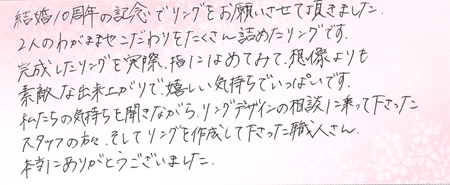 結婚10周年の記念でリングをお願いさせて頂きました.
2人のわがままやこだわりをたくさん詰めたリングです.
完成したリングを実際、指にはめてみて、想像よりも
素敵な出来上がりで嬉しい気持ちでいっぱいです.
私たちの気持ちを聞きながら、リングデザインの相談に乗って下さった
スタッフの方々、そしてリングを作成して下さった職人さん、
本当にありがとうございました.